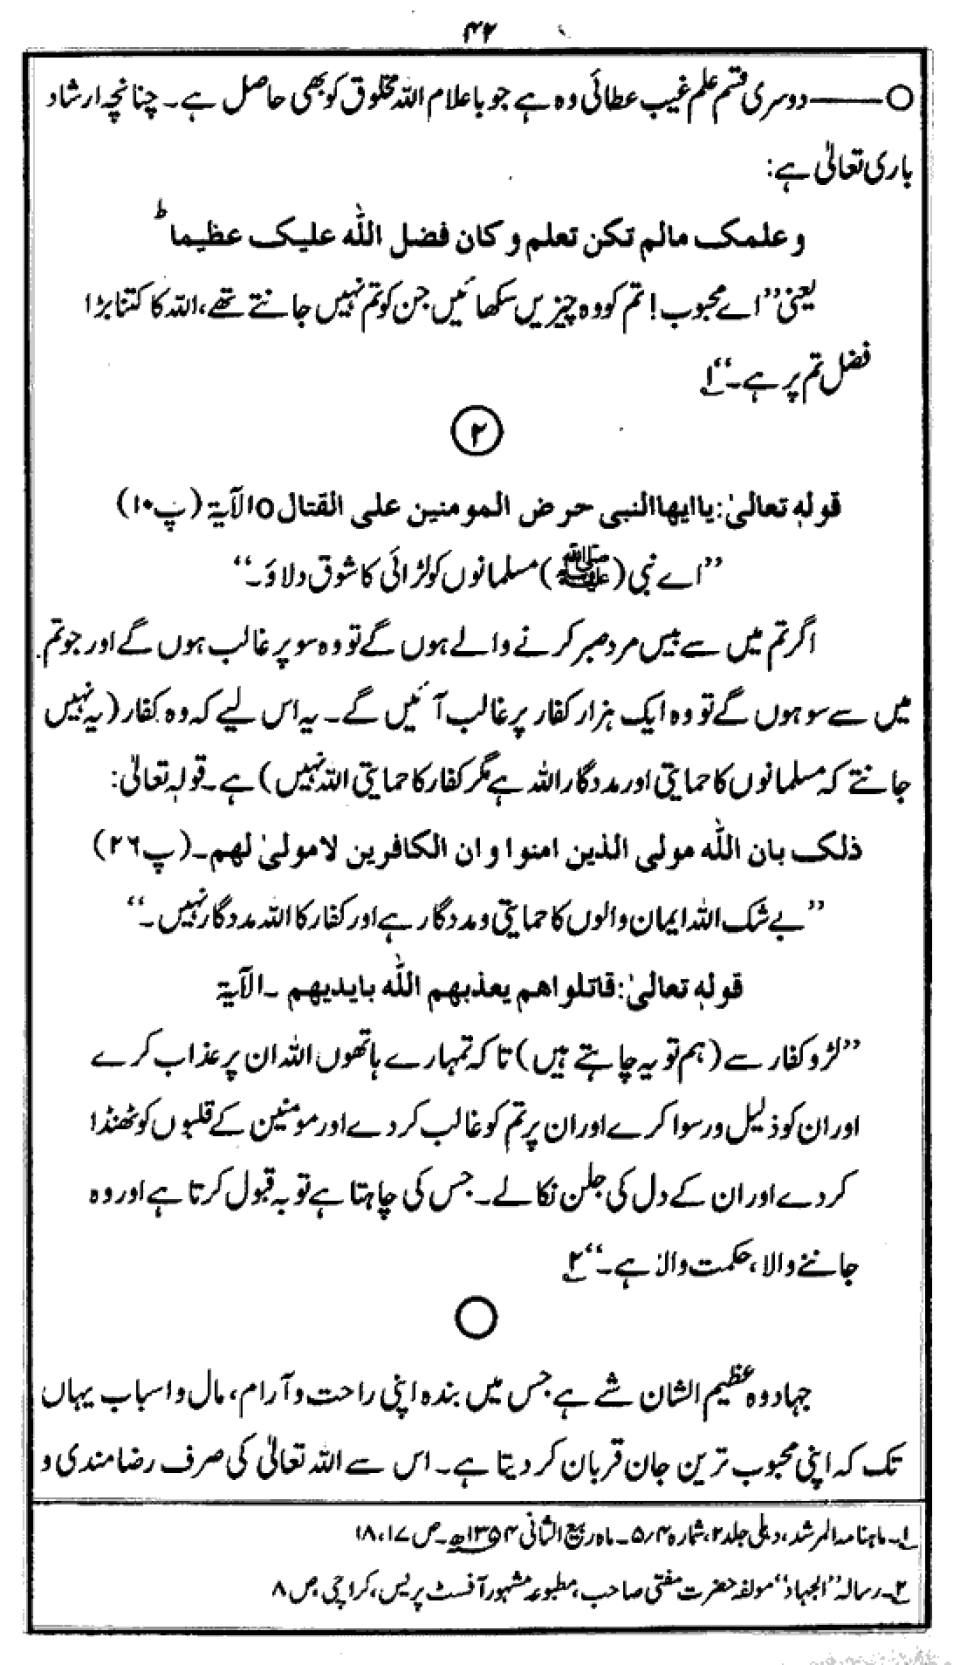 ۴۲
○——— دوسری قسم علم غیب عطائی وہ ہے جو باعلام اللہ مخلوق کو بھی حاصل ہے۔ چنانچہ ارشاد
باری تعالیٰ ہے:
وعلمک مالم تکن تعلم وکان فضل اللہ علیک عظیما ؕ
یعنی ’’اے محبوب! تم کو وہ چیزیں سکھائیں جن کو تم نہیں جانتے تھے، اللہ کا کتنا بڑا
فضل تم پر ہے۔‘‘۱
۲
قولہٖ تعالیٰ: یاایھاالنبی حرض المومنین علی القتال ○ الآیۃ (پ۱۰)
’’اے نبی (ﷺ) مسلمانوں کو لڑائی کا شوق دلاؤ۔‘‘
اگر تم میں سے بیس مرد صبر کرنے والے ہوں گے تو وہ سو پر غالب ہوں گے اور جو تم
میں سے سو ہوں گے تو وہ ایک ہزار کفار پر غالب آئیں گے۔ یہ اس لیے کہ وہ کفار (یہ نہیں
جانتے کہ مسلمانوں کا حمایتی اور مددگار اللہ ہے مگر کفار کا حمایتی اللہ نہیں) ہے۔ قولہٖ تعالیٰ:
ذلک بان اللہ مولی الذین امنوا و ان الکافرین لامولیٰ لھم۔ (پ۲۶)
’’بے شک اللہ ایمان والوں کا حمایتی و مددگار ہے اور کفار کا اللہ مددگار نہیں۔‘‘
قولہٖ تعالیٰ: قاتلواھم یعذبھم اللہ بایدیھم ۔ الآیۃ
’’لڑو کفار سے (ہم تو یہ چاہتے ہیں) تاکہ تمہارے ہاتھوں اللہ ان پر عذاب کرے
اور ان کو ذلیل و رسوا کرے اور ان پر تم کو غالب کردے اور مومنین کے قلبوں کو ٹھنڈا
کردے اور ان کے دل کی جلن نکالے۔ جس کی چاہتا ہے توبہ قبول کرتا ہے اور وہ
جاننے والا، حکمت والا ہے۔‘‘۲
○
جہاد وہ عظیم الشان شے ہے جس میں بندہ اپنی راحت و آرام، مال و اسباب یہاں
تک کہ اپنی محبوب ترین جان قربان کردیتا ہے۔ اس سے اللہ تعالیٰ کی صرف رضامندی و
۱۔ ماہنامہ المرشد، دہلی جلد ۲، شمارہ ۵/۴۔ ماہ ربیع الثانی ۱۳۵۴ھ۔ ص ۱۷، ۱۸
۲۔ رسالہ ’’الجہاد‘‘ مولفہ حضرت مفتی صاحب، مطبوعہ مشہور آفسٹ پریس، کراچی، ص ۸